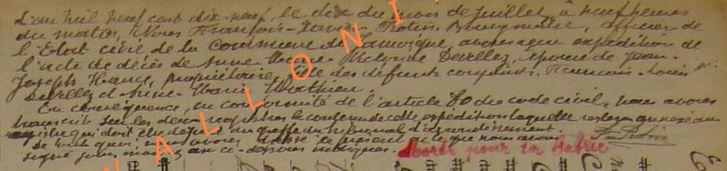 L'an mil neuf cent dix-neuf, le dix du mois de Juillet à neuf heures
du matin, Nous François-Xavier Potin Bourgmestre, officier de
l'Etat civil de la Commune de avons reçu expédition de
l'acte de décès de Anne Victorine Devillez, épouse de Jean-
Joseph propriétaire, des défunts conjoints, François Louis
Devillez et Anne Marie Mathieu.
En conséquence, en conformité de l'article 80 du code civil, nous avons
transcrit sur les deux registres le contenu de cette expédition laquelle restera annexée au
registre qui doit être déposé au greffe du tribunal d'arrondissement.
De tout quoi, nous avons dressé le présent acte que nous avons
signé jour, mois, an ci-dessus indiqués.
Morte pour la Patrie
WALLONI